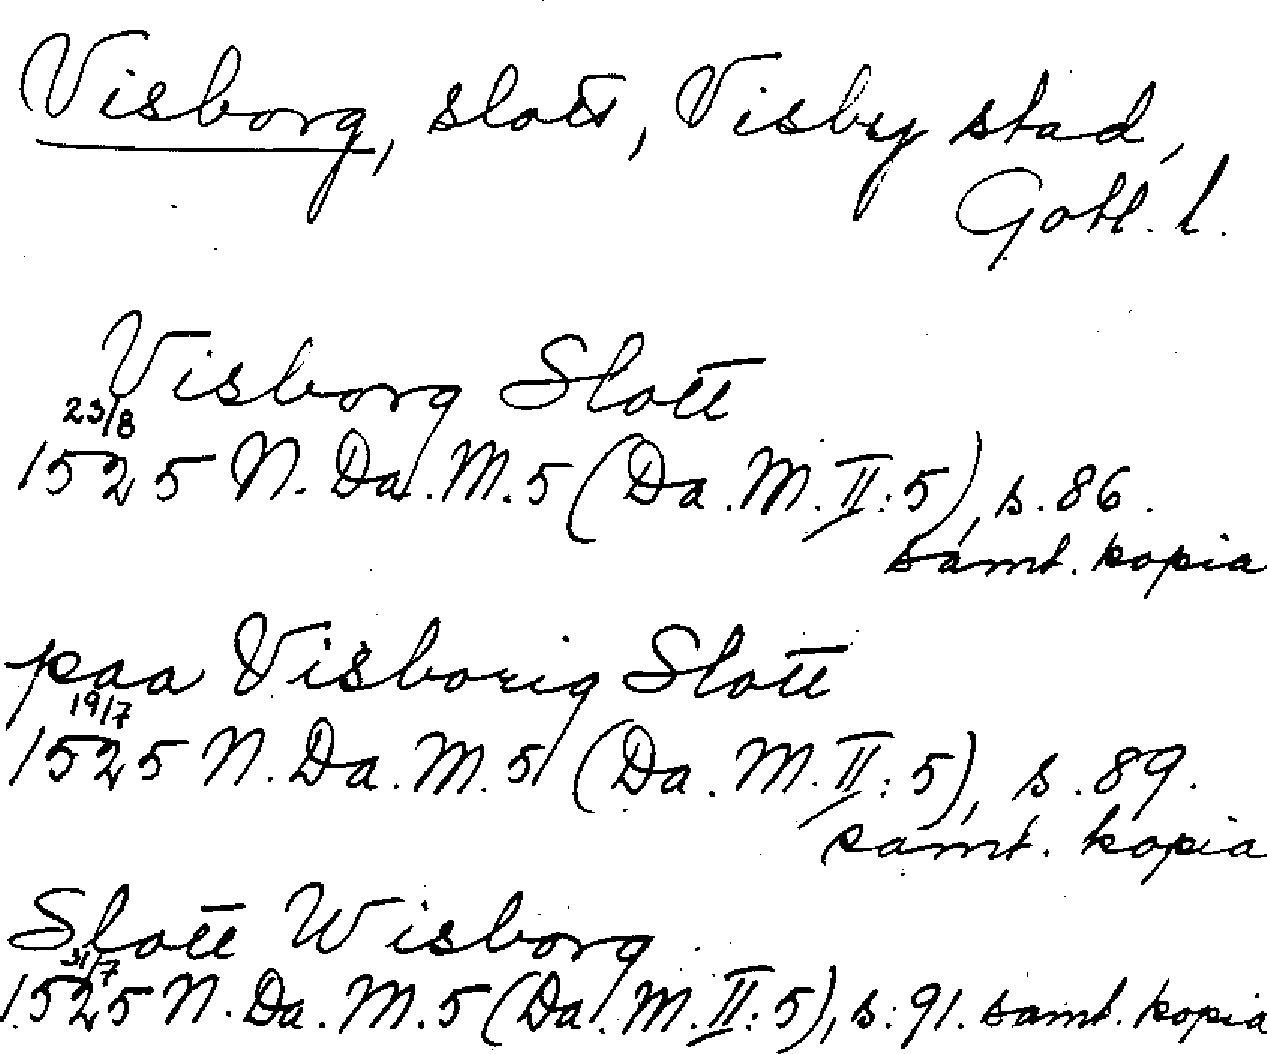 Visborg, slott, Visby stad,
Gotl. l.
Visborg Slott
23/8
1525 N. Da. M. 5 (Da. M. II: 5), s. 86.
samt. kopia
paa Visborig Slott
19/7
1525 N. Da. M. 5 (Da. M. II: 5), s. 89.
samt. kopia
Slott Wisborg
31/7
1525 N. Da. M. 5 (Da. M. II: 5), s. 91. samt. kopia